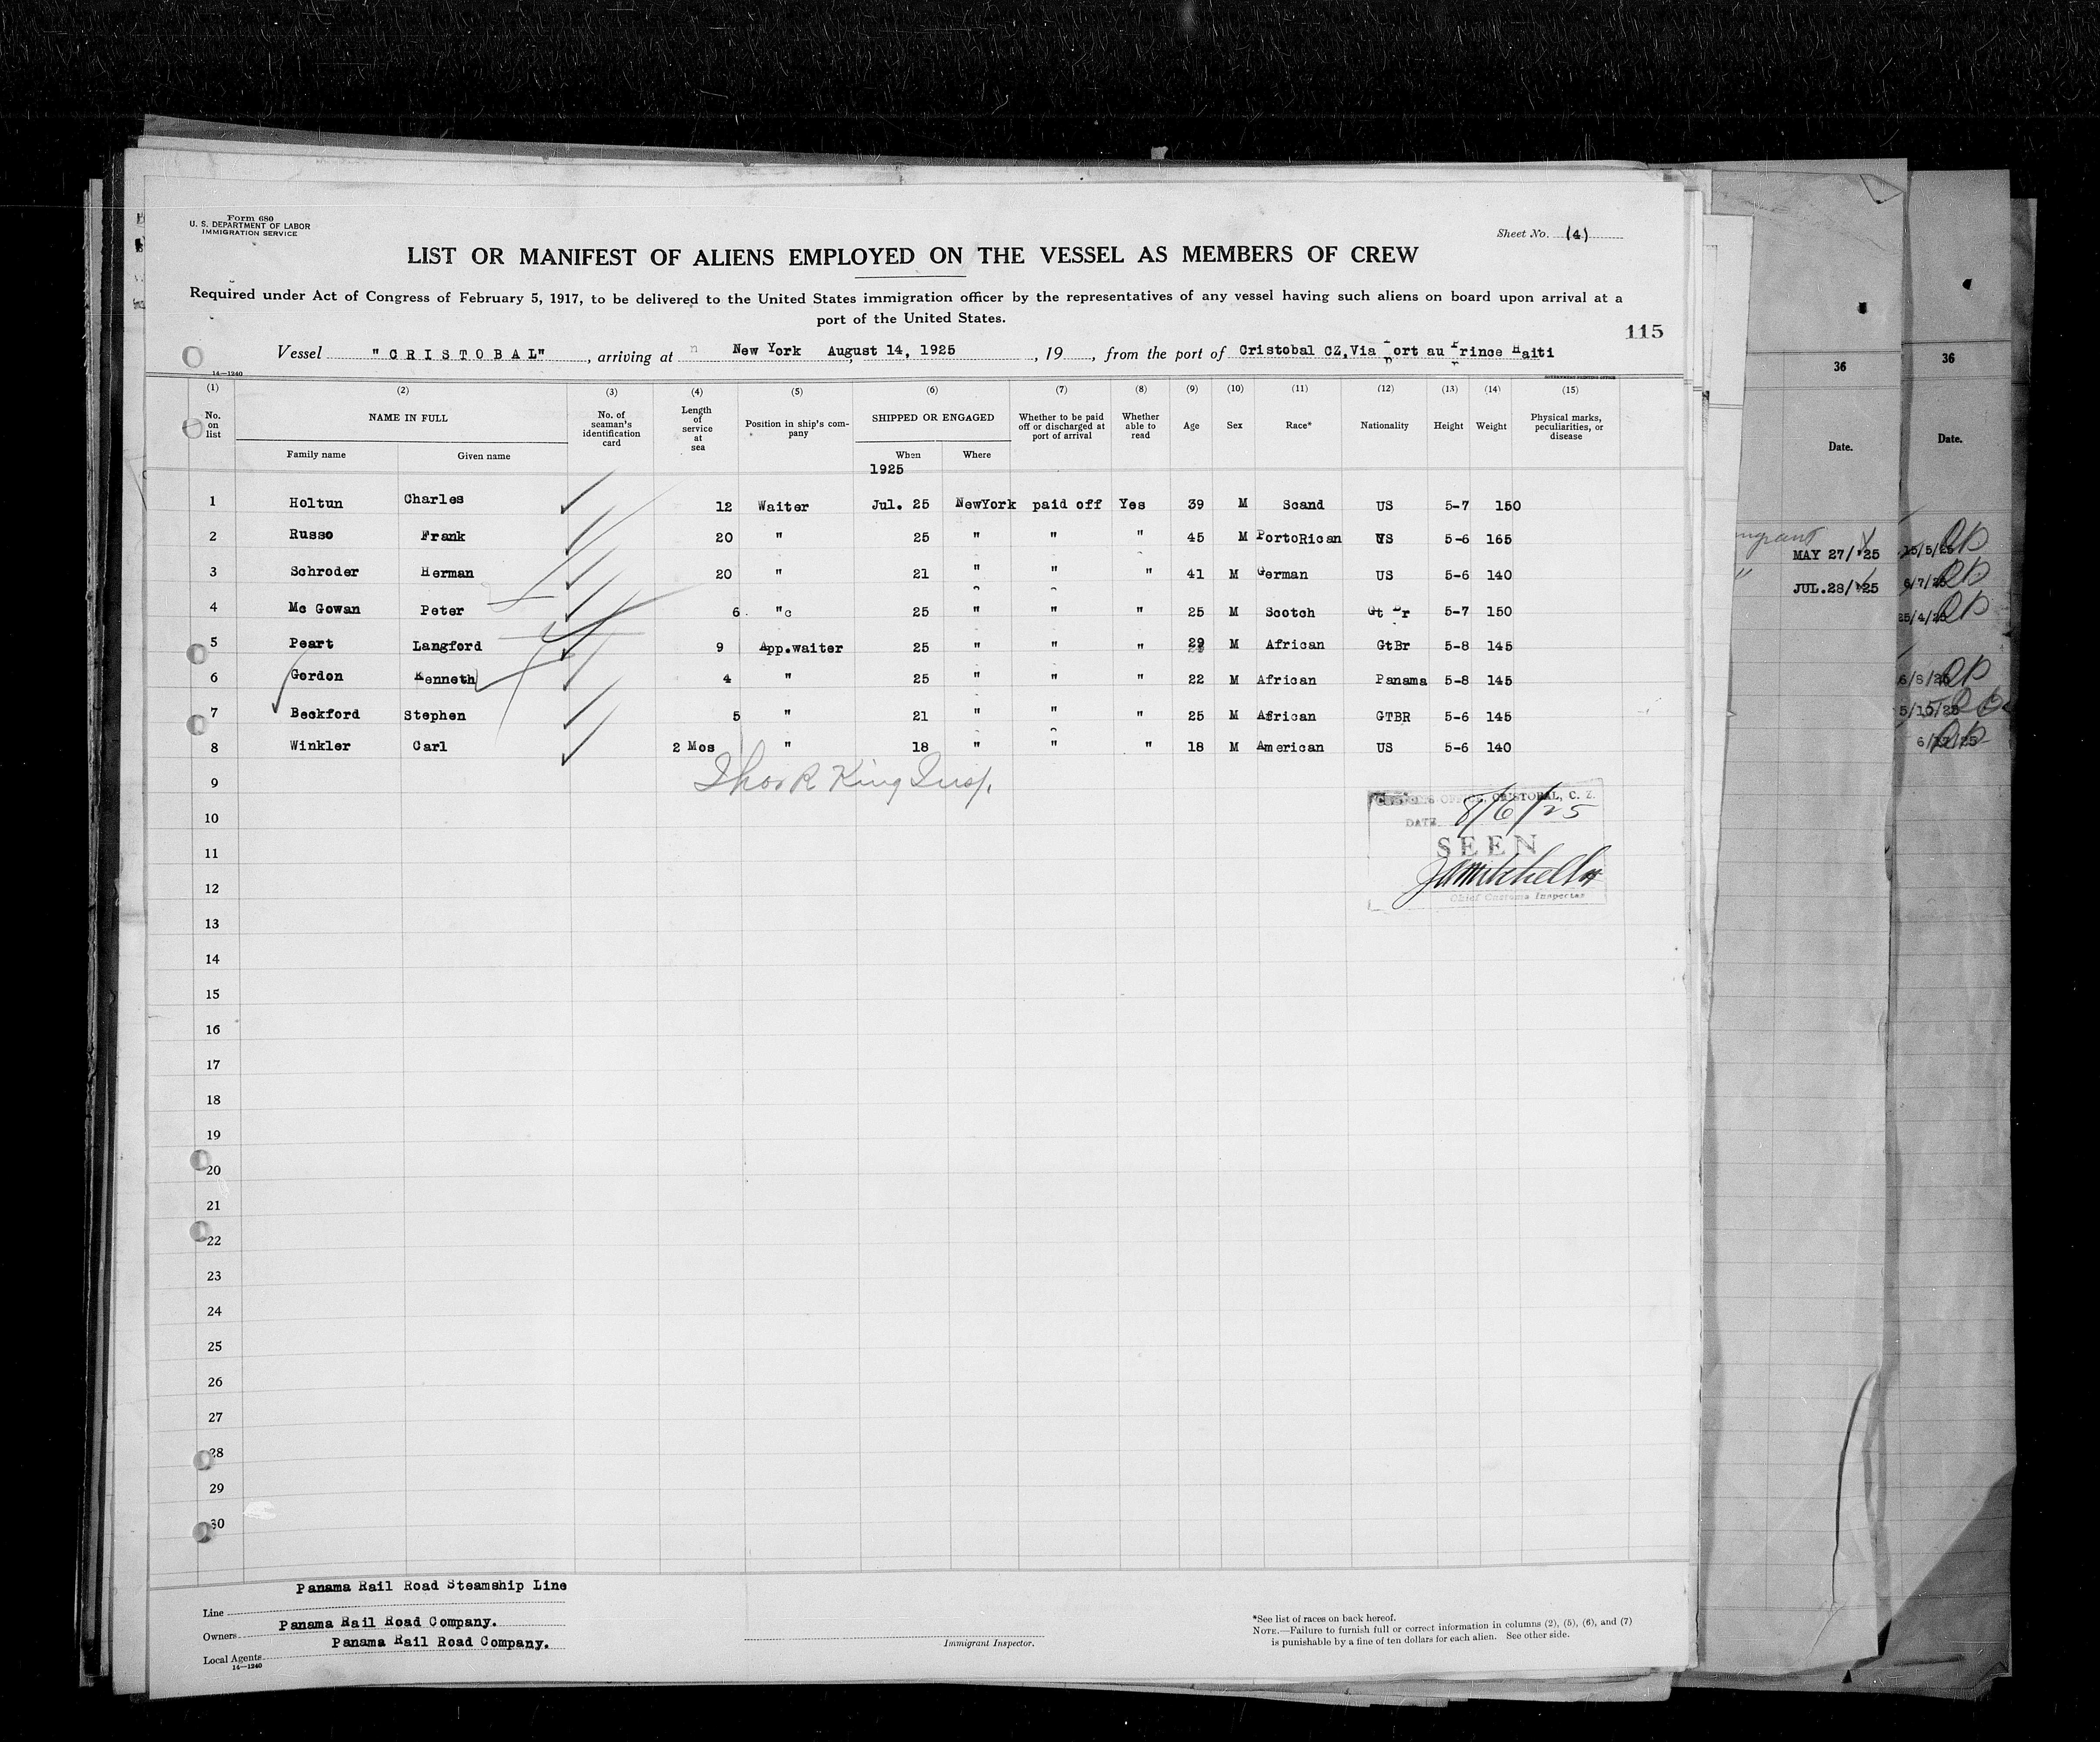 Form 680
U. S. DEPARTMENT OF LABOR
IMMIGRATION SERVICE
Sheet No. (4)
LIST OR MANIFEST OF ALIENS EMPLOYED ON THE VESSEL AS MEMBERS OF CREW
Required under Act of Congress of February 5, 1917, to be delivered to the United States immigration officer by the representatives of any vessel having such aliens on board upon arrival at a
port of the United States.
115
Vessel "CRISTOBAL", arriving at New York August 14, 1925, 19, from the port of Cristobal CZ,Via Port au Prince Haiti
14—1240
(1) (2) (3) (4) (5) (6) (7) (8) (9) (10) (11) (12) (13) (14) (15)
No. on list NAME IN FULL No. of seaman's identification card Length of service at sea Position in ship's company SHIPPED OR ENGAGED Whether to be paid off or discharged at port of arrival Whether able to read Age Sex Race* Nationality Height Weight Physical marks, peculiarities, or disease
Family name Given name When Where
1925
1 Holtun Charles 12 Waiter Jul. 25 NewYork paid off Yes 39 M Scand US 5-7 150
2 Russo Frank 20 " 25 " " " 45 M PortoRican US 5-6 165
3 Schroder Herman 20 " 21 " " " 41 M German US 5-6 140
4 Mc Gowan Peter 6 "c 25 " " " 25 M Scotch Gt Br 5-7 150
5 Peart Langford 9 App.waiter 25 " " " 29 M African GtBr 5-8 145
6 Gordon Kenneth 4 " 25 " " " 22 M African Panama 5-8 145
7 Beckford Stephen 5 " 21 " " " 25 M African GTBR 5-6 145
8 Winkler Carl 2 Mos " 18 " " " 18 M American US 5-6 140
9
Thos R King Insp.
10
11
12
13
14
15
16
17
18
19
20
21
22
23
24
25
26
27
28
29
30
OFFICE, CRISTOBAL, C. Z.
DATE 8/6/25
SEEN
Chief Customs Inspector
Panama Rail Road Steamship Line
Line
Panama Rail Road Company.
Owners
Panama Rail Road Company.
Local Agents
14—1240
Immigrant Inspector.
*See list of races on back hereof.
NOTE.—Failure to furnish full or correct information in columns (2), (5), (6), and (7)
is punishable by a fine of ten dollars for each alien. See other side.
36
Date.
MAY 27/'25
JUL.28/'25
36
Date.
15/5/25
6/7/25
25/4/25